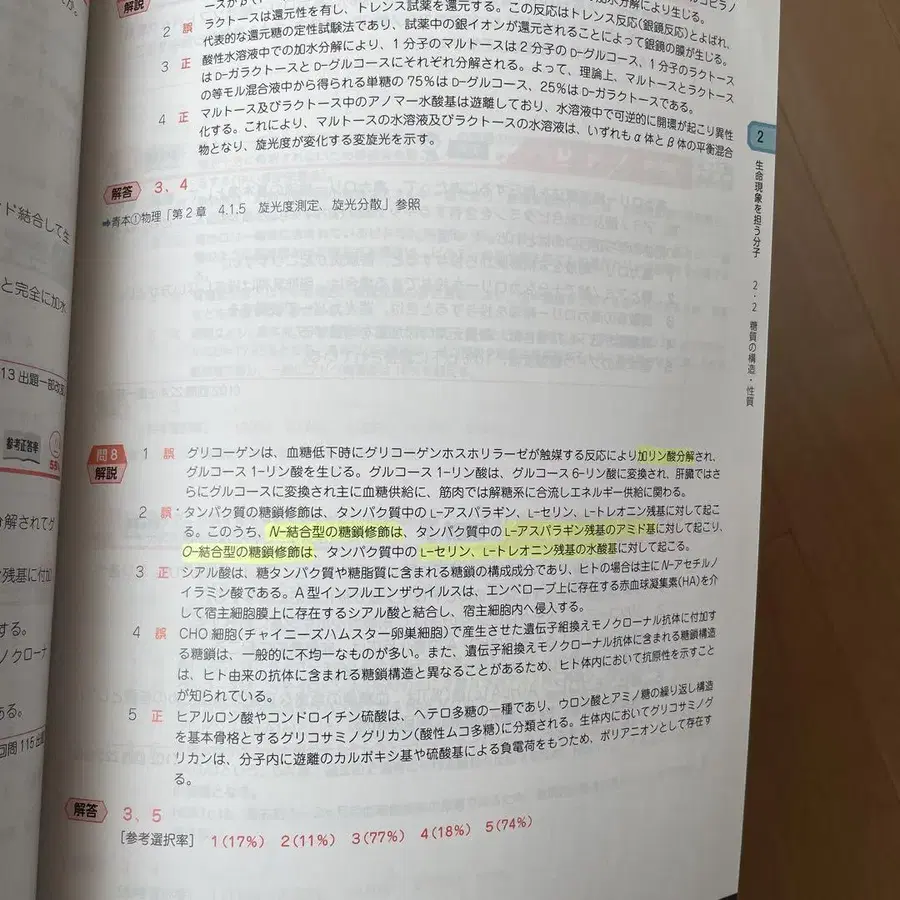 解説
2 誤 ラクトースは還元性を有し、トレンス試薬を還元する。この反応はトレンス反応(銀鏡反応)とよばれ、
代表的な還元糖の定性試験法であり、試薬中の銀イオンが還元されることによって銀鏡の膜が生じる。
3 正 酸性水溶液中での加水分解により、1分子のマルトースは2分子のD-グルコース、1分子のラクトース
はD-ガラクトースとD-グルコースにそれぞれ分解される。よって、理論上、マルトースとラクトース
の等モル混合液中から得られる単糖の75%はD-グルコース、25%はD-ガラクトースである。
4 正 マルトース及びラクトース中のアノマー水酸基は遊離しており、水溶液中で可逆的に開環が起こり異性
化する。これにより、マルトースの水溶液及びラクトースの水溶液は、いずれもα体とβ体の平衡混合
物となり、旋光度が変化する変旋光を示す。
解答 3、4
➡青本①物理「第2章 4.1.5 旋光度測定、旋光分散」参照
問8
解説
1 誤 グリコーゲンは、血糖低下時にグリコーゲンホスホリラーゼが触媒する反応により加リン酸分解され、
グルコース1-リン酸を生じる。グルコース1-リン酸は、グルコース6-リン酸に変換され、肝臓ではさ
らにグルコースに変換され主に血糖供給に、筋肉では解糖系に合流しエネルギー供給に関わる。
2 誤 タンパク質の糖鎖修飾は、タンパク質中のL-アスパラギン、L-セリン、L-トレオニン残基に対して起こ
る。このうち、N-結合型の糖鎖修飾は、タンパク質中のL-アスパラギン残基のアミド基に対して起こり、
O-結合型の糖鎖修飾は、タンパク質中のL-セリン、L-トレオニン残基の水酸基に対して起こる。
3 正 シアル酸は、糖タンパク質や糖脂質に含まれる糖鎖の構成成分であり、ヒトの場合は主にN-アセチルノ
イラミン酸である。A型インフルエンザウイルスは、エンベロープ上に存在する赤血球凝集素(HA)を介
して宿主細胞膜上に存在するシアル酸と結合し、宿主細胞内へ侵入する。
4 誤 CHO細胞(チャイニーズハムスター卵巣細胞)で産生させた遺伝子組換えモノクローナル抗体に付加す
る糖鎖は、一般的に不均一なものが多い。また、遺伝子組換えモノクローナル抗体に含まれる糖鎖構造
は、ヒト由来の抗体に含まれる糖鎖構造と異なることがあるため、ヒト体内において抗原性を示すこと
が知られている。
5 正 ヒアルロン酸やコンドロイチン硫酸は、ヘテロ多糖の一種であり、ウロン酸とアミノ糖の繰り返し構造
を基本骨格とするグリコサミノグリカン(酸性ムコ多糖)に分類される。生体内においてグリコサミノグ
リカンは、分子内に遊離のカルボキシ基や硫酸基による負電荷をもつため、ポリアニオンとして存在す
る。
解答 3、5
[参考選択率] 1(17%) 2(11%) 3(77%) 4(18%) 5(74%)
2
生命現象を担う分子
2・2 糖質の構造・性質
ド結合して生
と完全に加水
13出題一部改変
参考正答率
分解されてグ
残基に付加
する。
ノクローナ
ある。
回問115出題